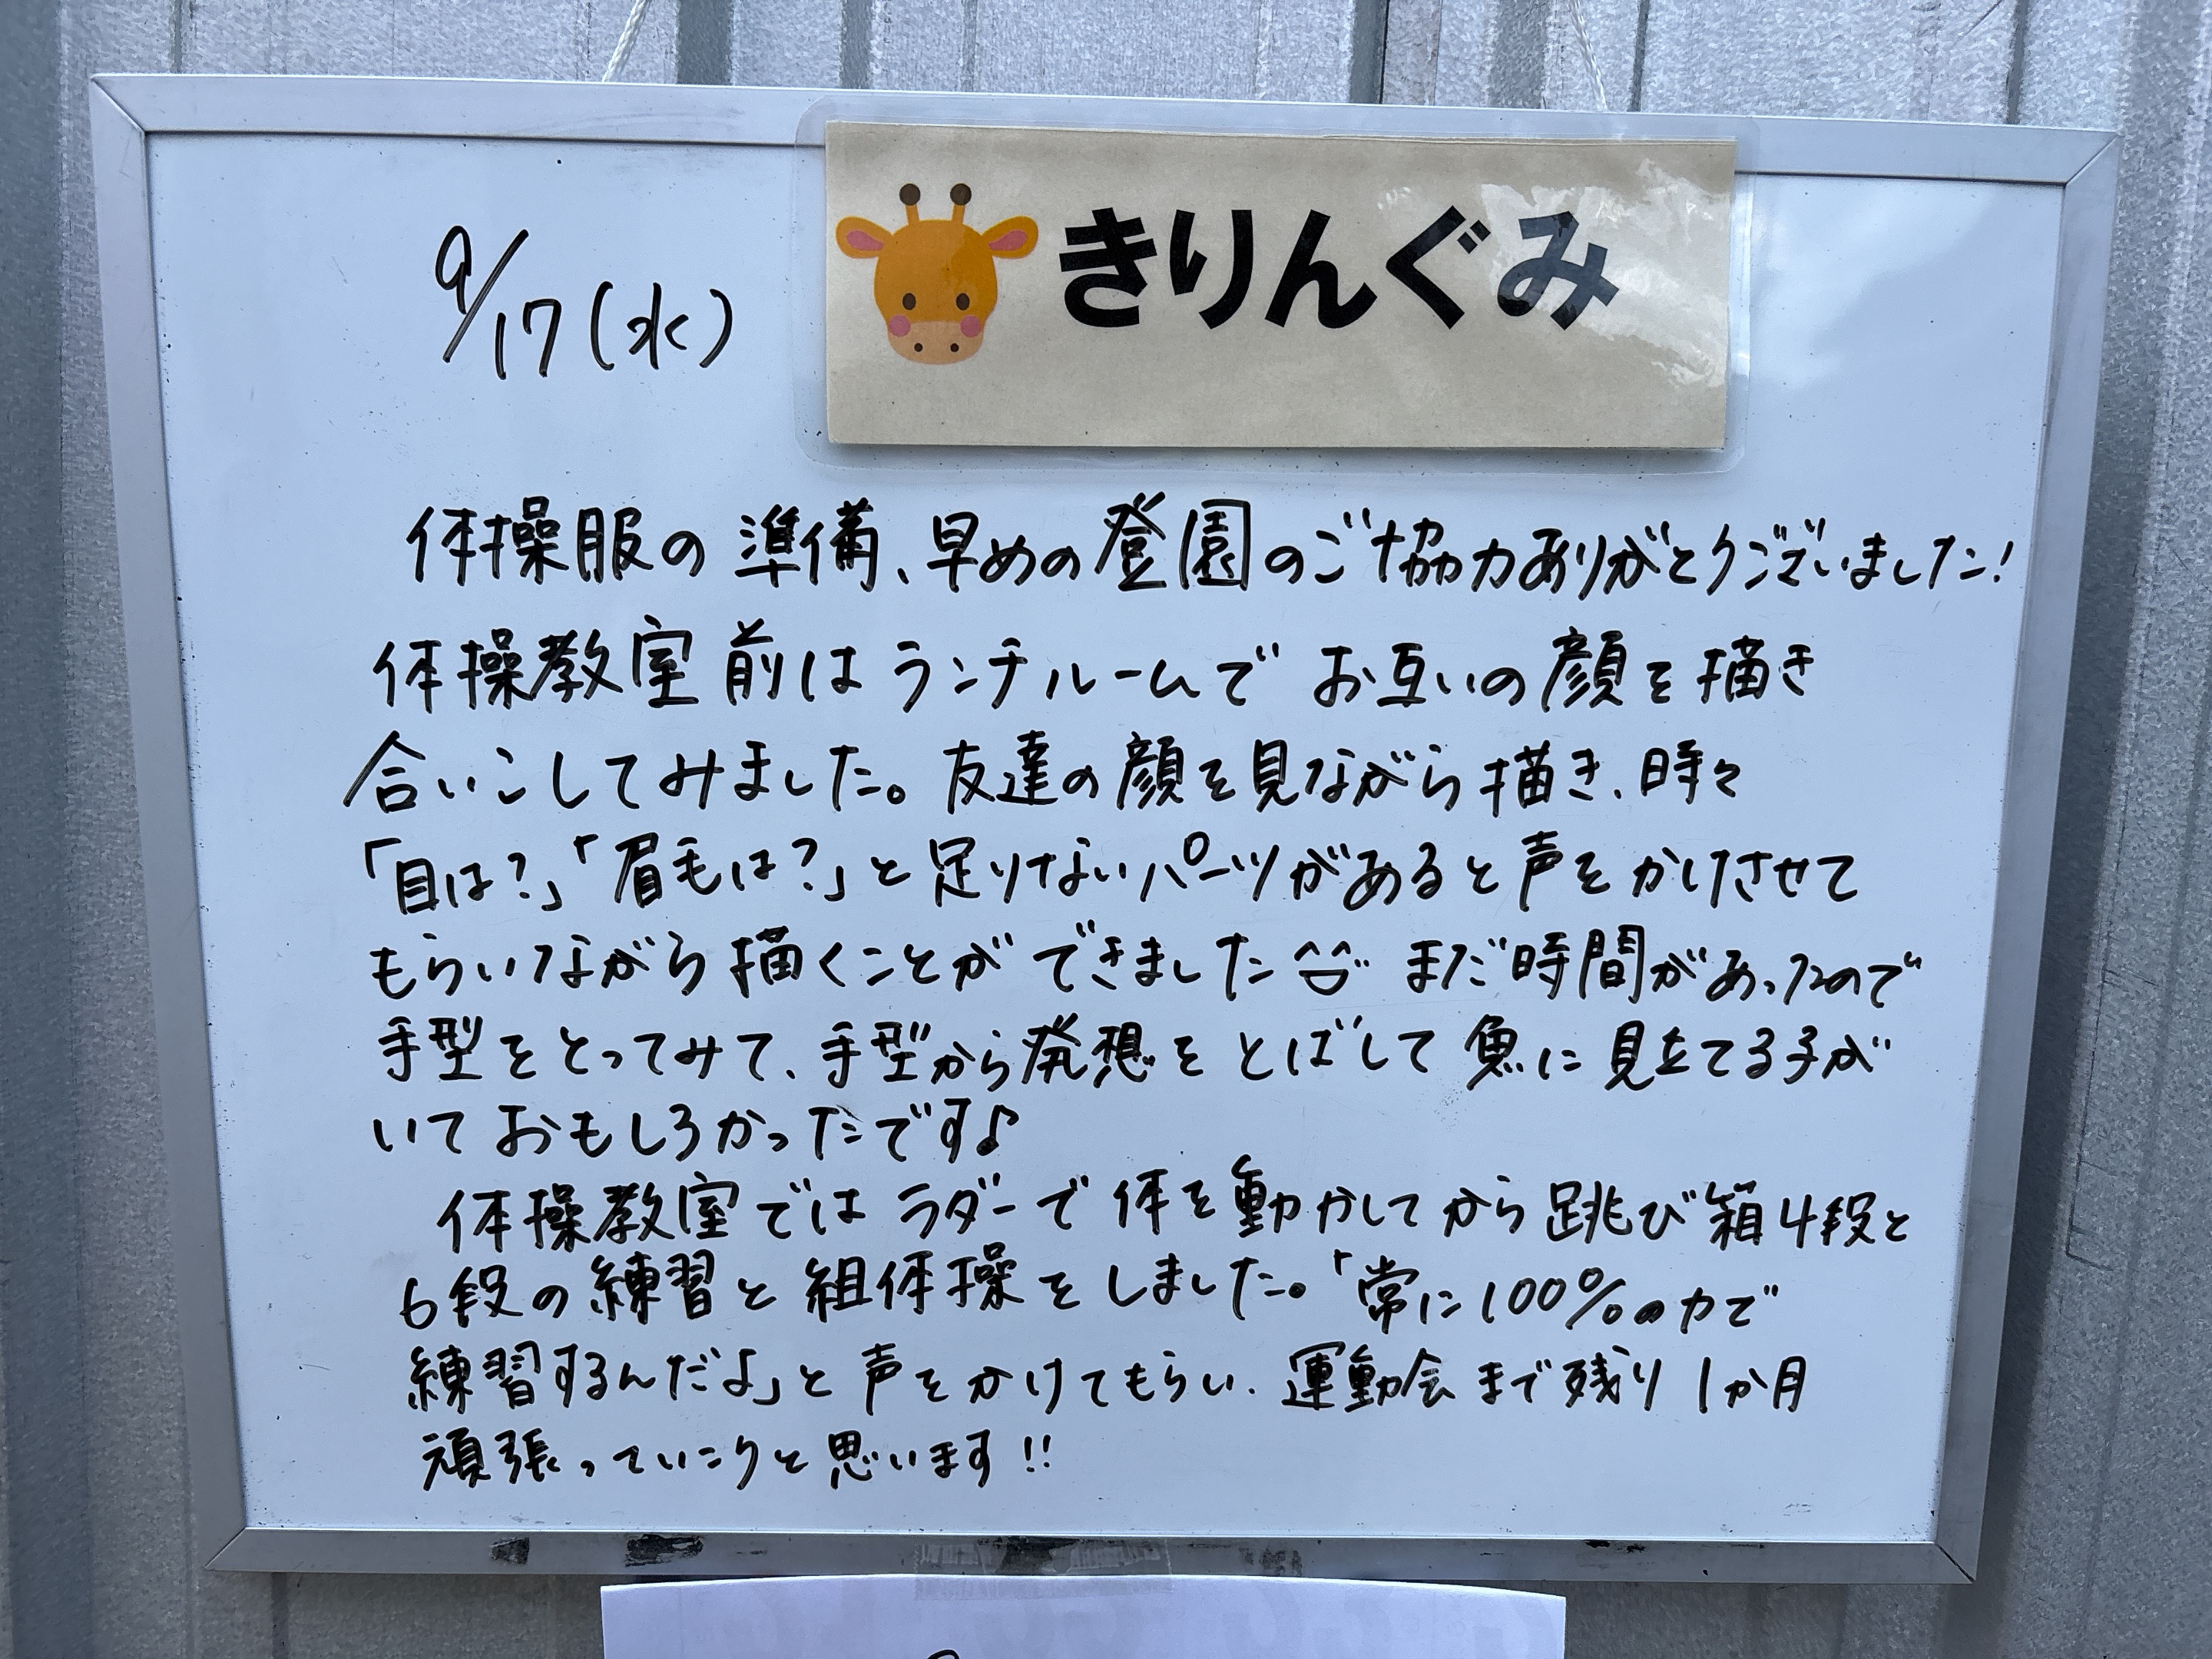 きりんぐみ
9/17(水)
体操服の準備、早めの登園のご協力ありがとうございました!
体操教室前はランチルームでお互いの顔を描き
合いこしてみました。友達の顔を見ながら描き、時々
「目は?」「眉毛は?」と足りないパーツがあると声をかけさせて
もらいながら描くことができました まだ時間があったので
手型をとってみて、手型から発想をとばして魚に見立てる子が
いておもしろかったです♪
体操教室ではラダーで体を動かしてから跳び箱4段と
6段の練習と組体操をしました。「常に100%の力で
練習するんだよ」と声をかけてもらい、運動会まで残り1か月
頑張っていこうと思います!!